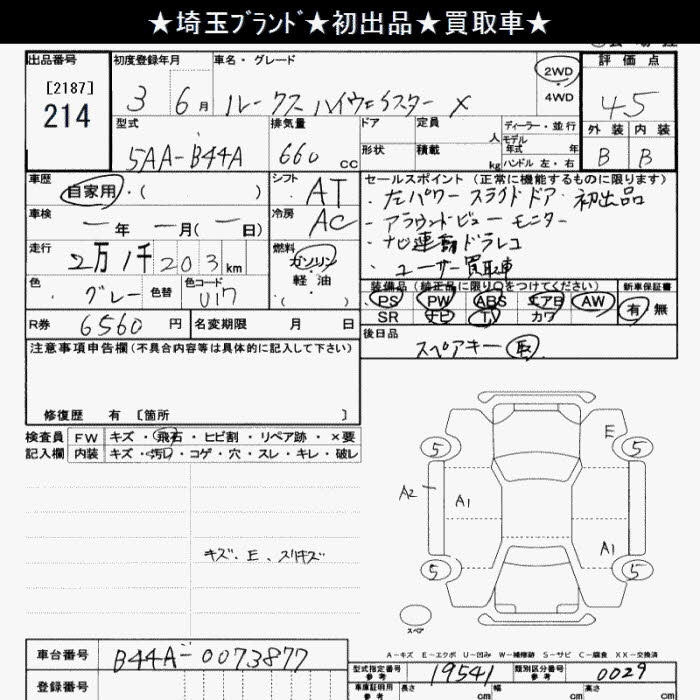 ★埼玉ﾌﾞﾗﾝﾄﾞ★初出品★買取車★
出品番号
[2187]
214
初度登録年月
3 6月
車名・グレード
ルークス ハイウェイスター X
2WD
・
4WD
評価点
4.5
外装 内装
B B
型式
5AA-B44A
排気量
660 cc
ドア
形状
定員 人
積載 kg
ディーラー・並行
モデル
年式 年
ハンドル 左・右
車歴
自家用・( )
シフト
AT
車検
ー年 ー月(ー日)
冷房
AC
走行
2万1千203km
燃料
ガソリン
軽・油
・( )
色
グレー
色替
色コード
U17
R券 6560 円
名変期限 月 日
セールスポイント (正常に機能するものに限ります)
・左パワースライドドア・初出品
・アラウンドビューモニター
・ナビ連動ドラレコ
・ユーザー買取車
装備品(純正品に限り○をつけてください)
PS PW ABS エアB AW
SR ナビ TV カワ
新車保証書
有・無
後日品
スペアキー 取
注意事項申告欄(不具合内容等は具体的に記入して下さい)
修復歴 有 〔箇所 〕
検査員
記入欄
FW キズ・飛石・ヒビ割・リペア跡・×要
内装 キズ・汚れ・コゲ・穴・スレ・キレ・破レ
キズ・E、スリキズ
E
5 5
A2 A1
A1
5 5
スペア
A-キズ E-エクボ U-凹み W-補修跡 S-サビ C-腐食 XX-交換済
車台番号 B44A-0073877
登録番号
型式指定番号
参考
19541
類別区分番号
参考
0029
車庫証明用
参考
長さ cm
幅 cm
高さ cm